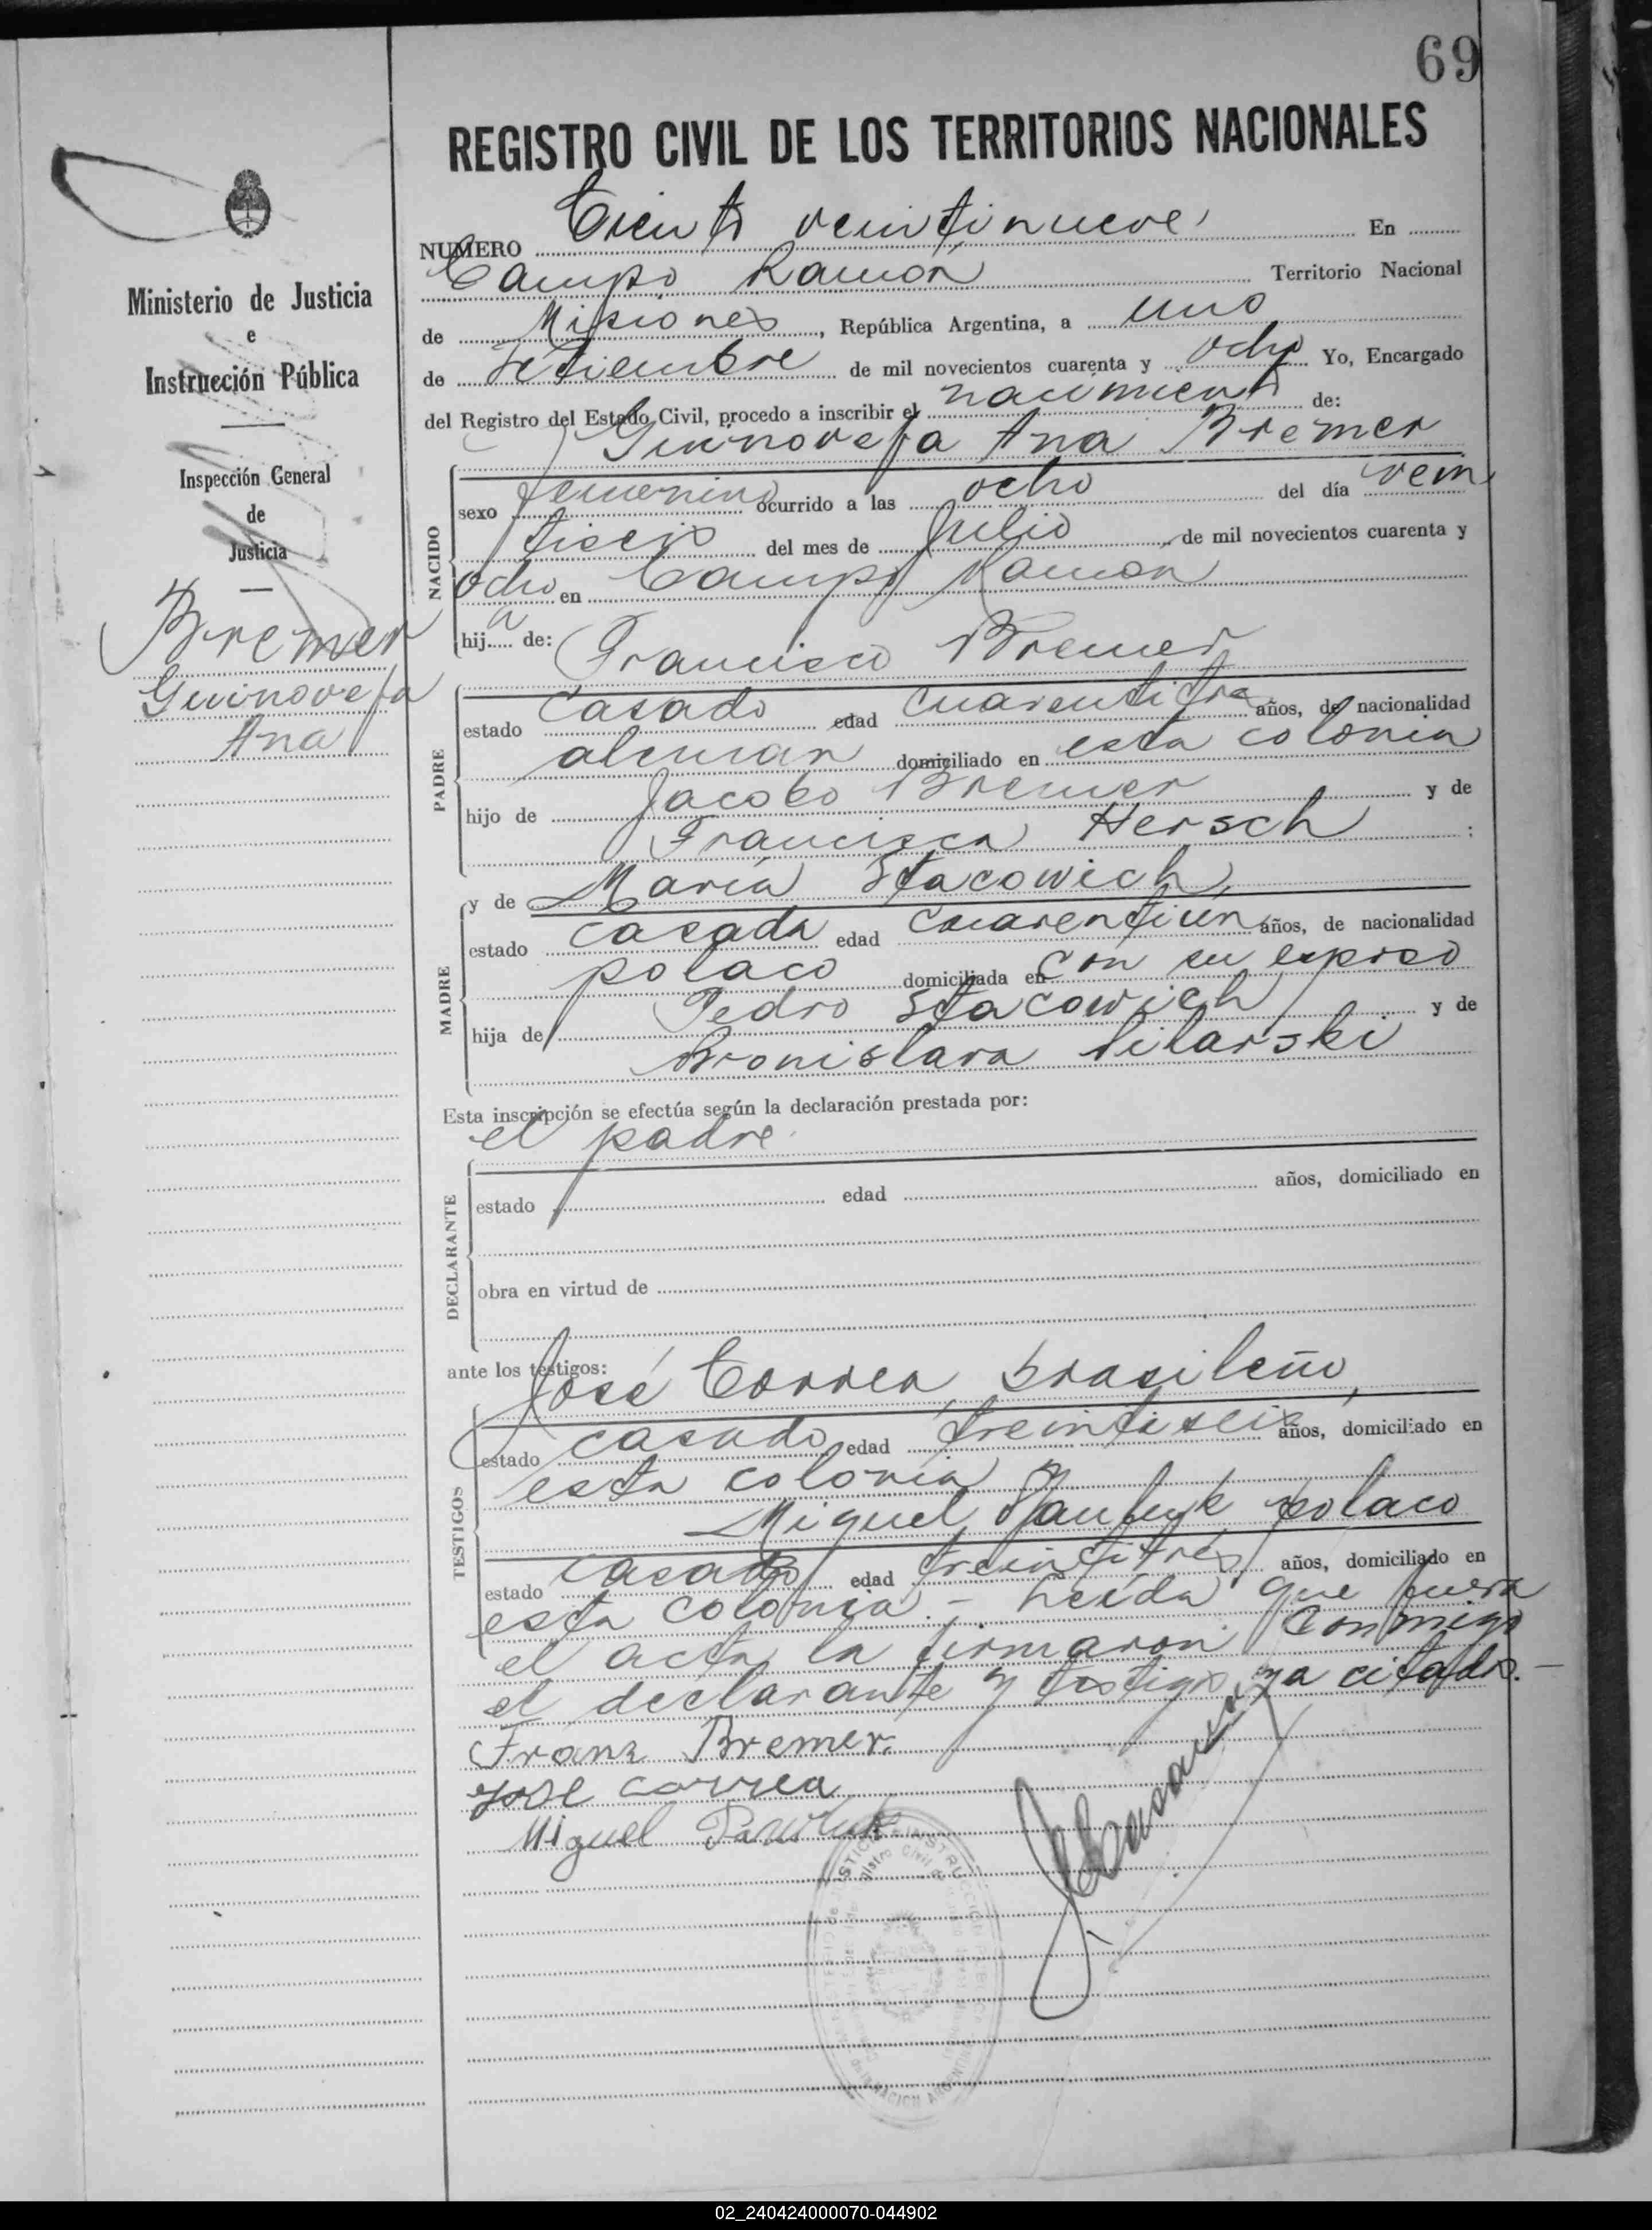 69
REGISTRO CIVIL DE LOS TERRITORIOS NACIONALES
NUMERO Ciento veintinueve, En
Campo Ramón Territorio Nacional
de Misiones, República Argentina, a uno
de Setiembre de mil novecientos cuarenta y ocho Yo, Encargado
del Registro del Estado Civil, procedo a inscribir el nacimiento de:
Guinovefa Ana Bremer
NACIDO
sexo femenino ocurrido a las ocho del día vein
tiseis del mes de Julio de mil novecientos cuarenta y
ocho en Campo Ramon
hija de: Francisco Bremer
PADRE
estado casado edad cuarentitres años, de nacionalidad
aleman domiciliado en esta colonia
hijo de Jacobo Bremer y de
Francisca Hersch :
y de María Stacowich,
MADRE
estado casada edad cuarentiun años, de nacionalidad
polaco domiciliada en con su esposo
hija de Pedro Stacowich y de
Bronislava Pilarski
Esta inscripción se efectúa según la declaración prestada por:
el padre
DECLARANTE
estado edad años, domiciliado en
obra en virtud de
ante los testigos: José Correa, brasileño,
TESTIGOS
estado casado edad treintiseis años, domiciliado en
esta colonia y
Miguel polaco
estado casado edad treintitrés años, domiciliado en
esta colonia.- Leída que fuera
el acta, la firmaron conmigo
el declarante y testigos ya citados.-
Franz Bremer.
Jose Correa
Miguel
Ministerio de Justicia
e
Instrucción Pública
Inspección General
de
Justicia
Bremer
Guinovefa
Ana
02_240424000070-044902